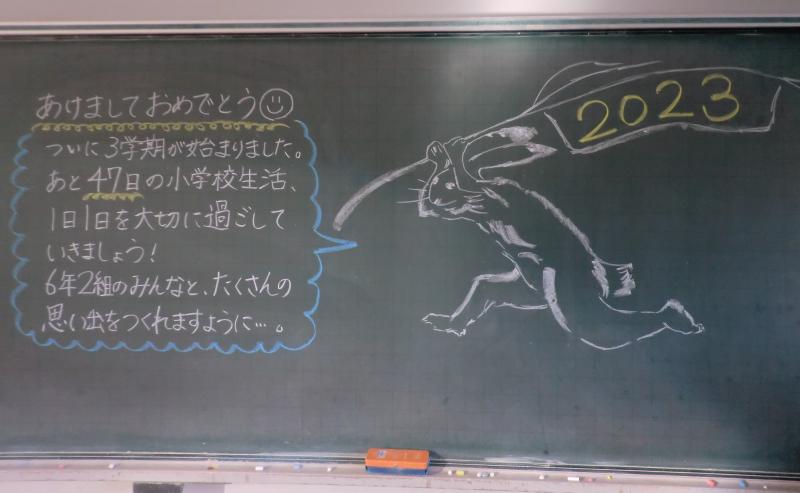 あけましておめでとう
ついに3学期が始まりました。
あと47日の小学校生活、
1日1日を大切に過ごして
いきましょう!
6年2組のみんなと、たくさんの
思い出をつくれますように…。
2023